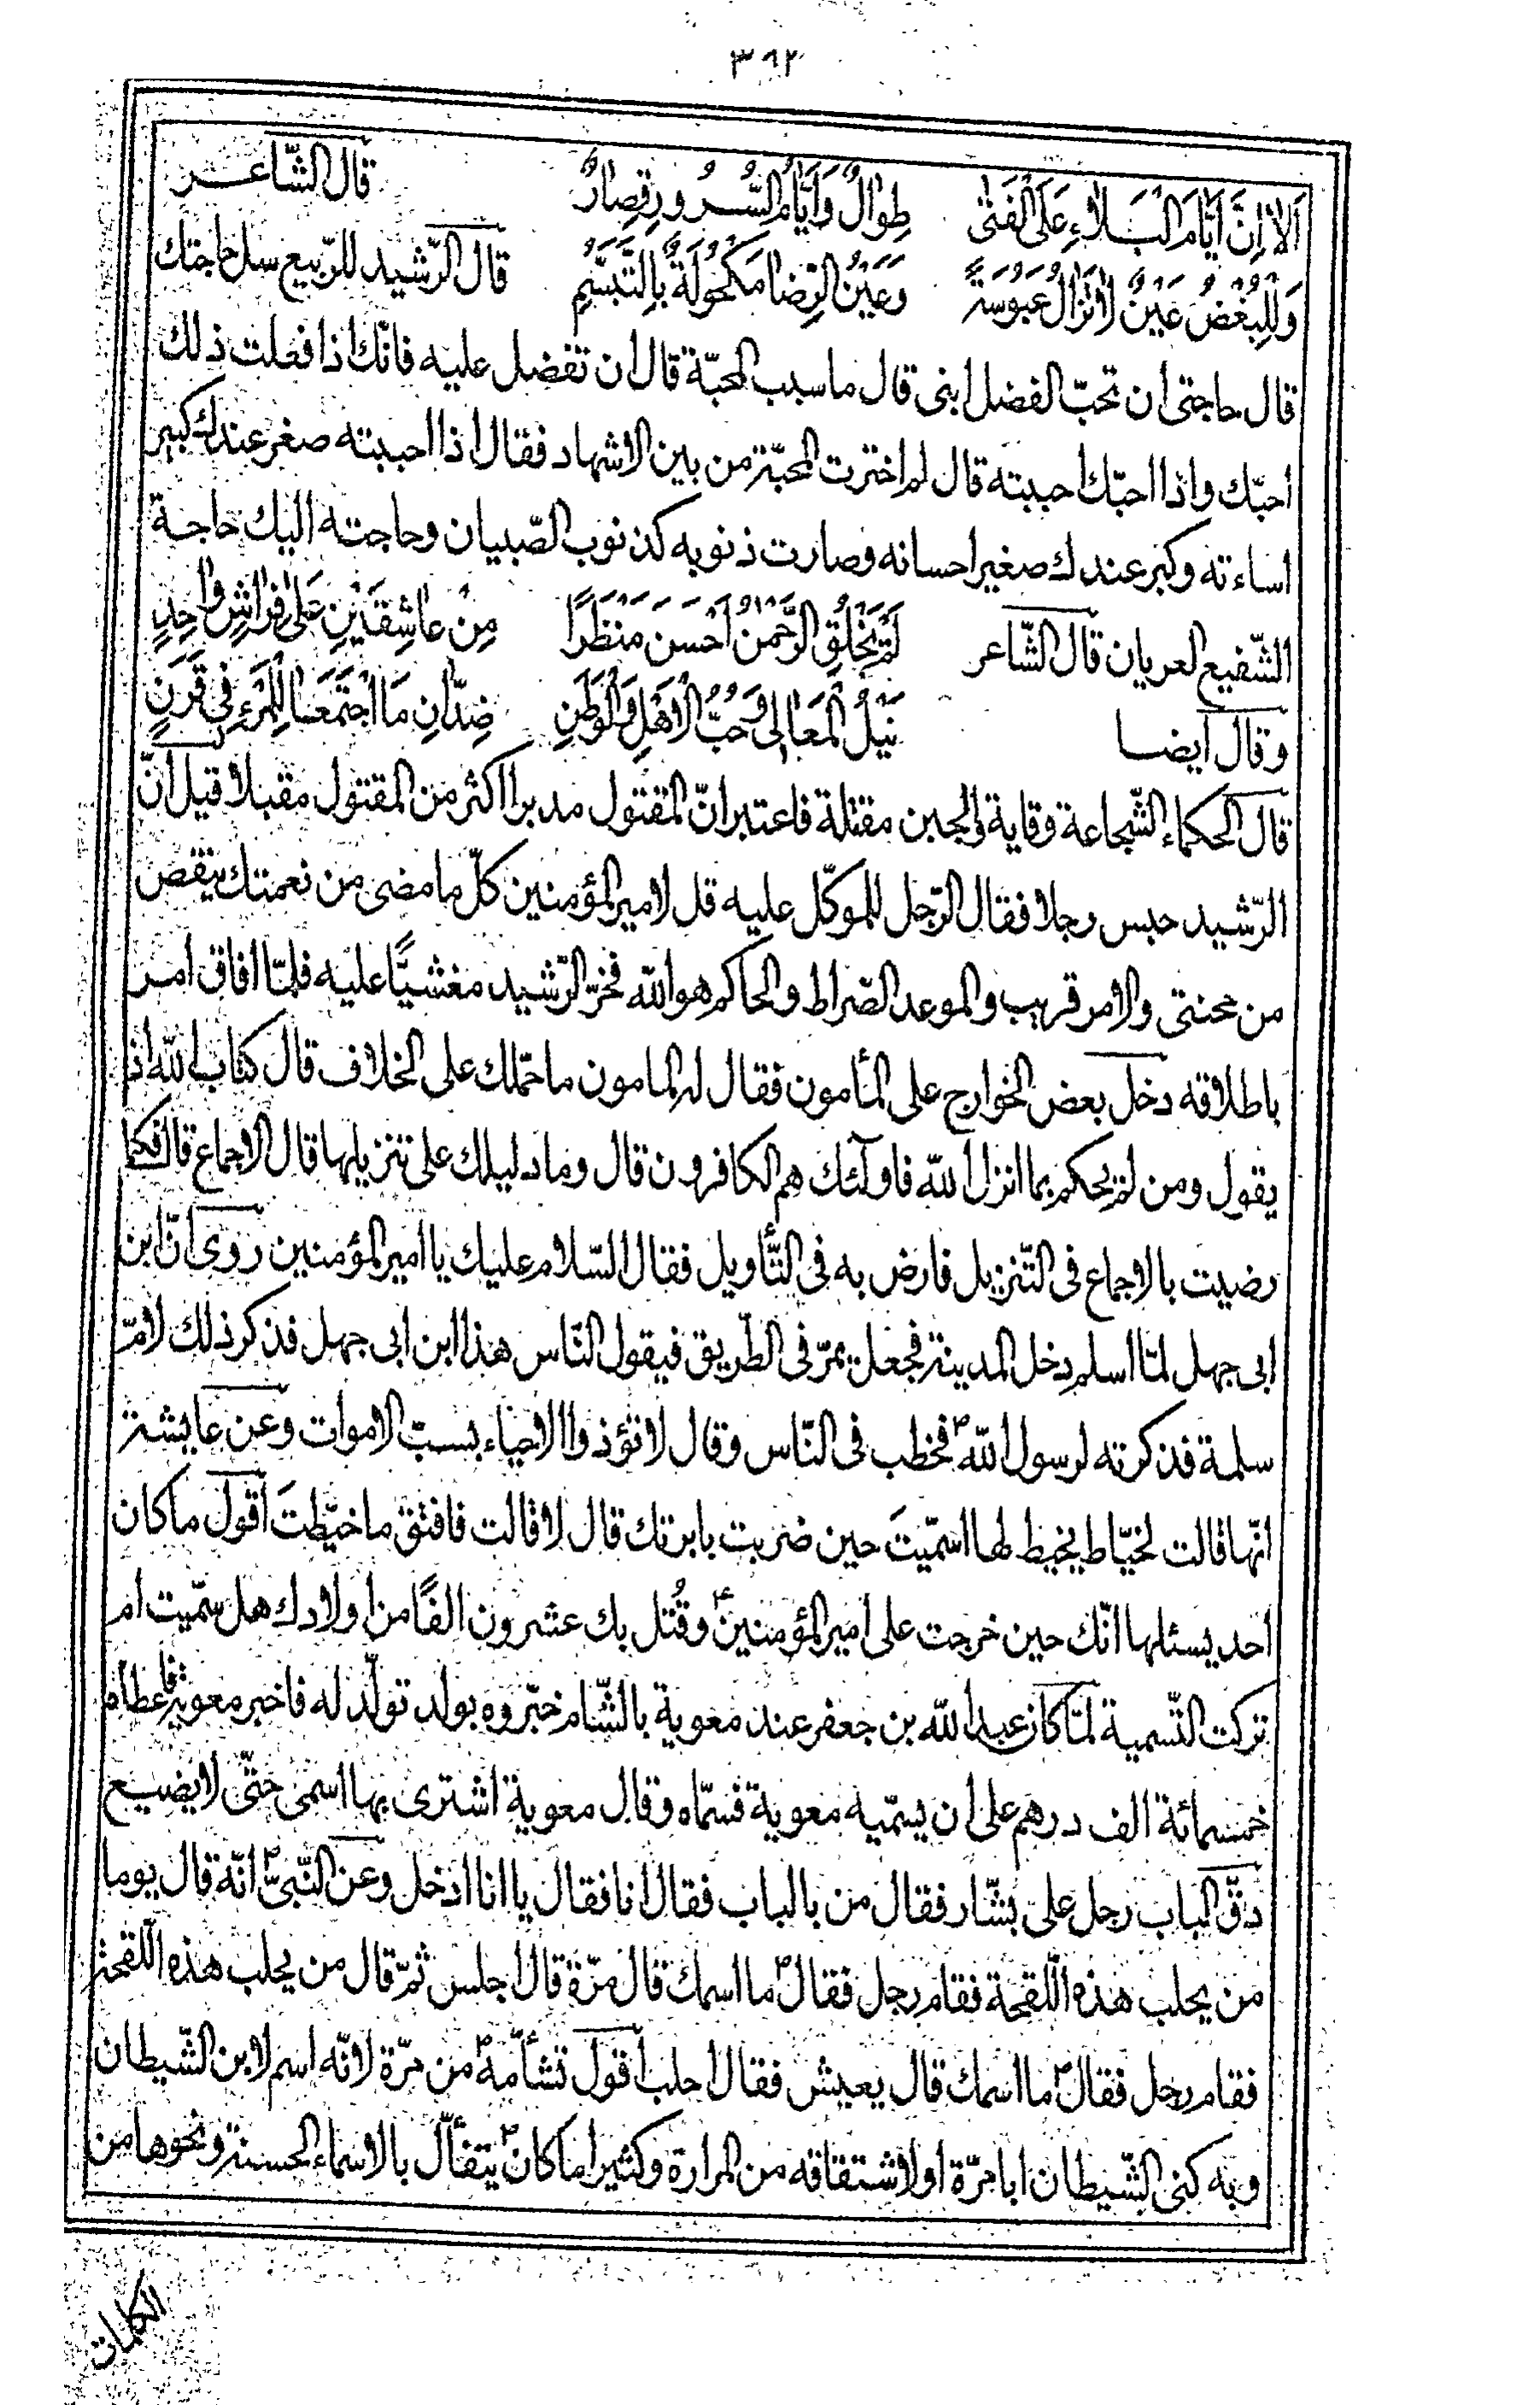 ٣٦٢
اَلا اِنَّ اَيَّامَ الْبَلاءِ عَلَى الْفَتىٰ طِوالٌ وَاَيَّامُ السُّرُورِ قِصارٌ قال الشّاعر
وَلِلْبُغْضِ عَيْنٌ لاتَزالُ عَبُوسَةً وَعَيْنُ الرِّضا مَكْحُولَةٌ بِالتَّبَسُّمِ قال الرّشيد للرّبيع سل حاجتك
قال حاجتى ان تحبّ الفضل ابنى قال ما سبب المحبّة قال ان تفضل عليه فانّك اذا فعلت ذلك
احبّك واذا احبّك احببته قال لم اخترت المحبّة من بين الاشهاد فقال اذا احببته صغر عندك كبير
اساءته وكبر عندك صغير احسانه وصارت ذنوبه كذنوب الصّبيان وحاجته اليك حاجة
الشّفيع العريان قال الشّاعر لَمْ يَخْلُقِ الرَّحْمٰنُ اَحْسَنَ مَنْظَرًا مِنْ عاشِقَيْنِ عَلىٰ فِراشٍ واحِدٍ
وقال ايضا نَيْلُ الْمَعالى وَحُبُّ الْاَهْلِ وَالْوَطَنِ ضِدّانِ مَا اجْتَمَعَا لِلْمَرْءِ فى قَرَنٍ
قال الحكماء الشّجاعة وقاية والجبن مقتلة فاعتبر انّ المقتول مدبرا اكثر من المقتول مقبلا قيل انّ
الرّشيد حبس رجلا فقال الرّجل للموكّل عليه قل لامير المؤمنين كلّ ما مضى من نعمتك ينقص
من محنتى والامر قريب والموعد الصّراط والحاكم هو الله فخرّ الرّشيد مغشيًّا عليه فلمّا افاق امر
باطلاقه دخل بعض الخوارج على المأمون فقال له المامون ما حملك على الخلاف قال كتاب الله اذ
يقول ومن لم يحكم بما انزل الله فاولٓئك هم الكافرون قال وما دليلك على تنزيلها قال الاجماع قال فكما
رضيت بالاجماع فى التّنزيل فارض به فى التّأويل فقال السّلام عليك يا امير المؤمنين روى انّ ابن
ابى جهل لمّا اسلم دخل المدينة فجعل يمرّ فى الطّريق فيقول النّاس هذا ابن ابى جهل فذكر ذلك لامّ
سلمة فذكرته لرسول الله ص فخطب فى النّاس وقال لا تؤذوا الاحياء بسبّ الاموات وعن عايشة
انّها قالت لخيّاط يخيط لها اسمّيتَ حين ضربت بابرتك قال لا قالت فافتق ما خيّطتَ اقول ما كان
احد يسئلها انّك حين خرجت على امير المؤمنين ع وقُتل بك عشرون الفًا من اولادك هل سمّيت ام
تركت التّسمية لمّا كان عبد الله بن جعفر عند معوية بالشّام خبّروه بولد تولّد له فاخبر معوية فاعطاه
خمسمائة الف درهم على ان يسمّيه معوية فسمّاه وقال معوية اشترى بها اسمى حتّى لا يضيع
دقّ الباب رجل على بشّار فقال من بالباب فقال انا فقال يا انا ادخل وعن النّبىّ ص انّه قال يوما
من يحلب هذه اللّقحة فقام رجل فقال ص ما اسمك قال مرّة قال اجلس ثمّ قال من يحلب هذه اللّقحة
فقام رجل فقال ص ما اسمك قال يعيش فقال احلب اقول تشأّمه ص من مرّة لانّه اسم لابن الشّيطان
وبه كنى الشّيطان ابا مرّة او لاشتقاقه من المرارة وكثيرا ما كان ص يتفأّل بالاسماء الحسنة ونحوها من
الكلمات